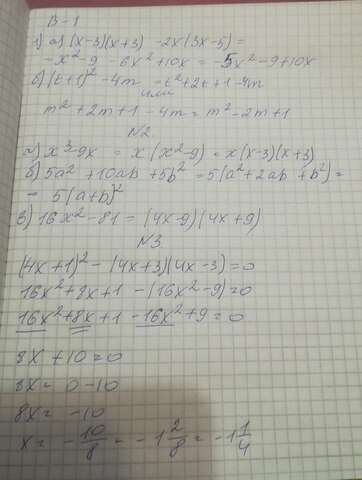 В-1
1) а) (x-3)(x+3) -2x(3x-5)=
-x²-9 -6x²+10x = -5x²-9+10x
б) (t+1)² -4m -t²+2t+1-4m
или
m²+2m+1-4m = m²-2m+1
N2
а) x³-9x = x(x²-9) = x(x-3)(x+3)
б) 5a²+10ab+5b² = 5(a²+2ab+b²)=
- 5(a+b)²
в) 16x²-81 = (4x-9)(4x+9)
N3
(4x+1)²-(4x+3)(4x-3)=0
16x²+8x+1 -(16x²-9)=0
16x²+8x+1-16x²+9=0
8x+10=0
8x= 0-10
8x= -10
x= -10/8 = -1 2/8 = -1 1/4